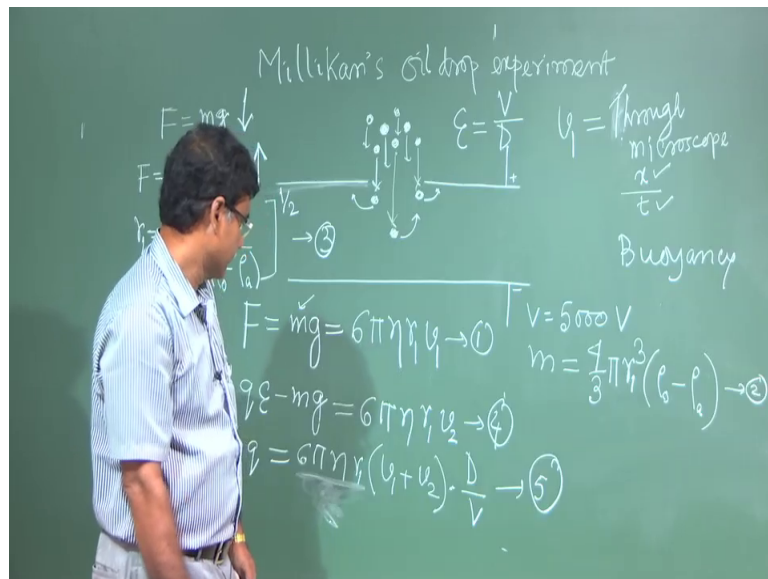 Millikan's oil drop experiment
F = mg ↓
F =
ε = V/D
v₁ = Through
microscope
x✓/t✓
Buoyancy
r₁ =
ρₐ) ]^1/2 → ③
+
−
V = 5000 V
F = mg = 6πηr₁v₁ → ①
m = 4/3 πr₁³ (ρ₀ − ρₐ) → ②
qε − mg = 6πηr₁v₂ → ④
q = 6πηr₁(v₁ + v₂) · D/V → ⑤